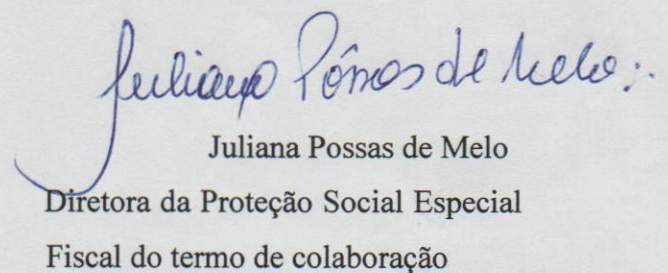 Juliana Pôssas de Melo
Juliana Possas de Melo
Diretora da Proteção Social Especial
Fiscal do termo de colaboração